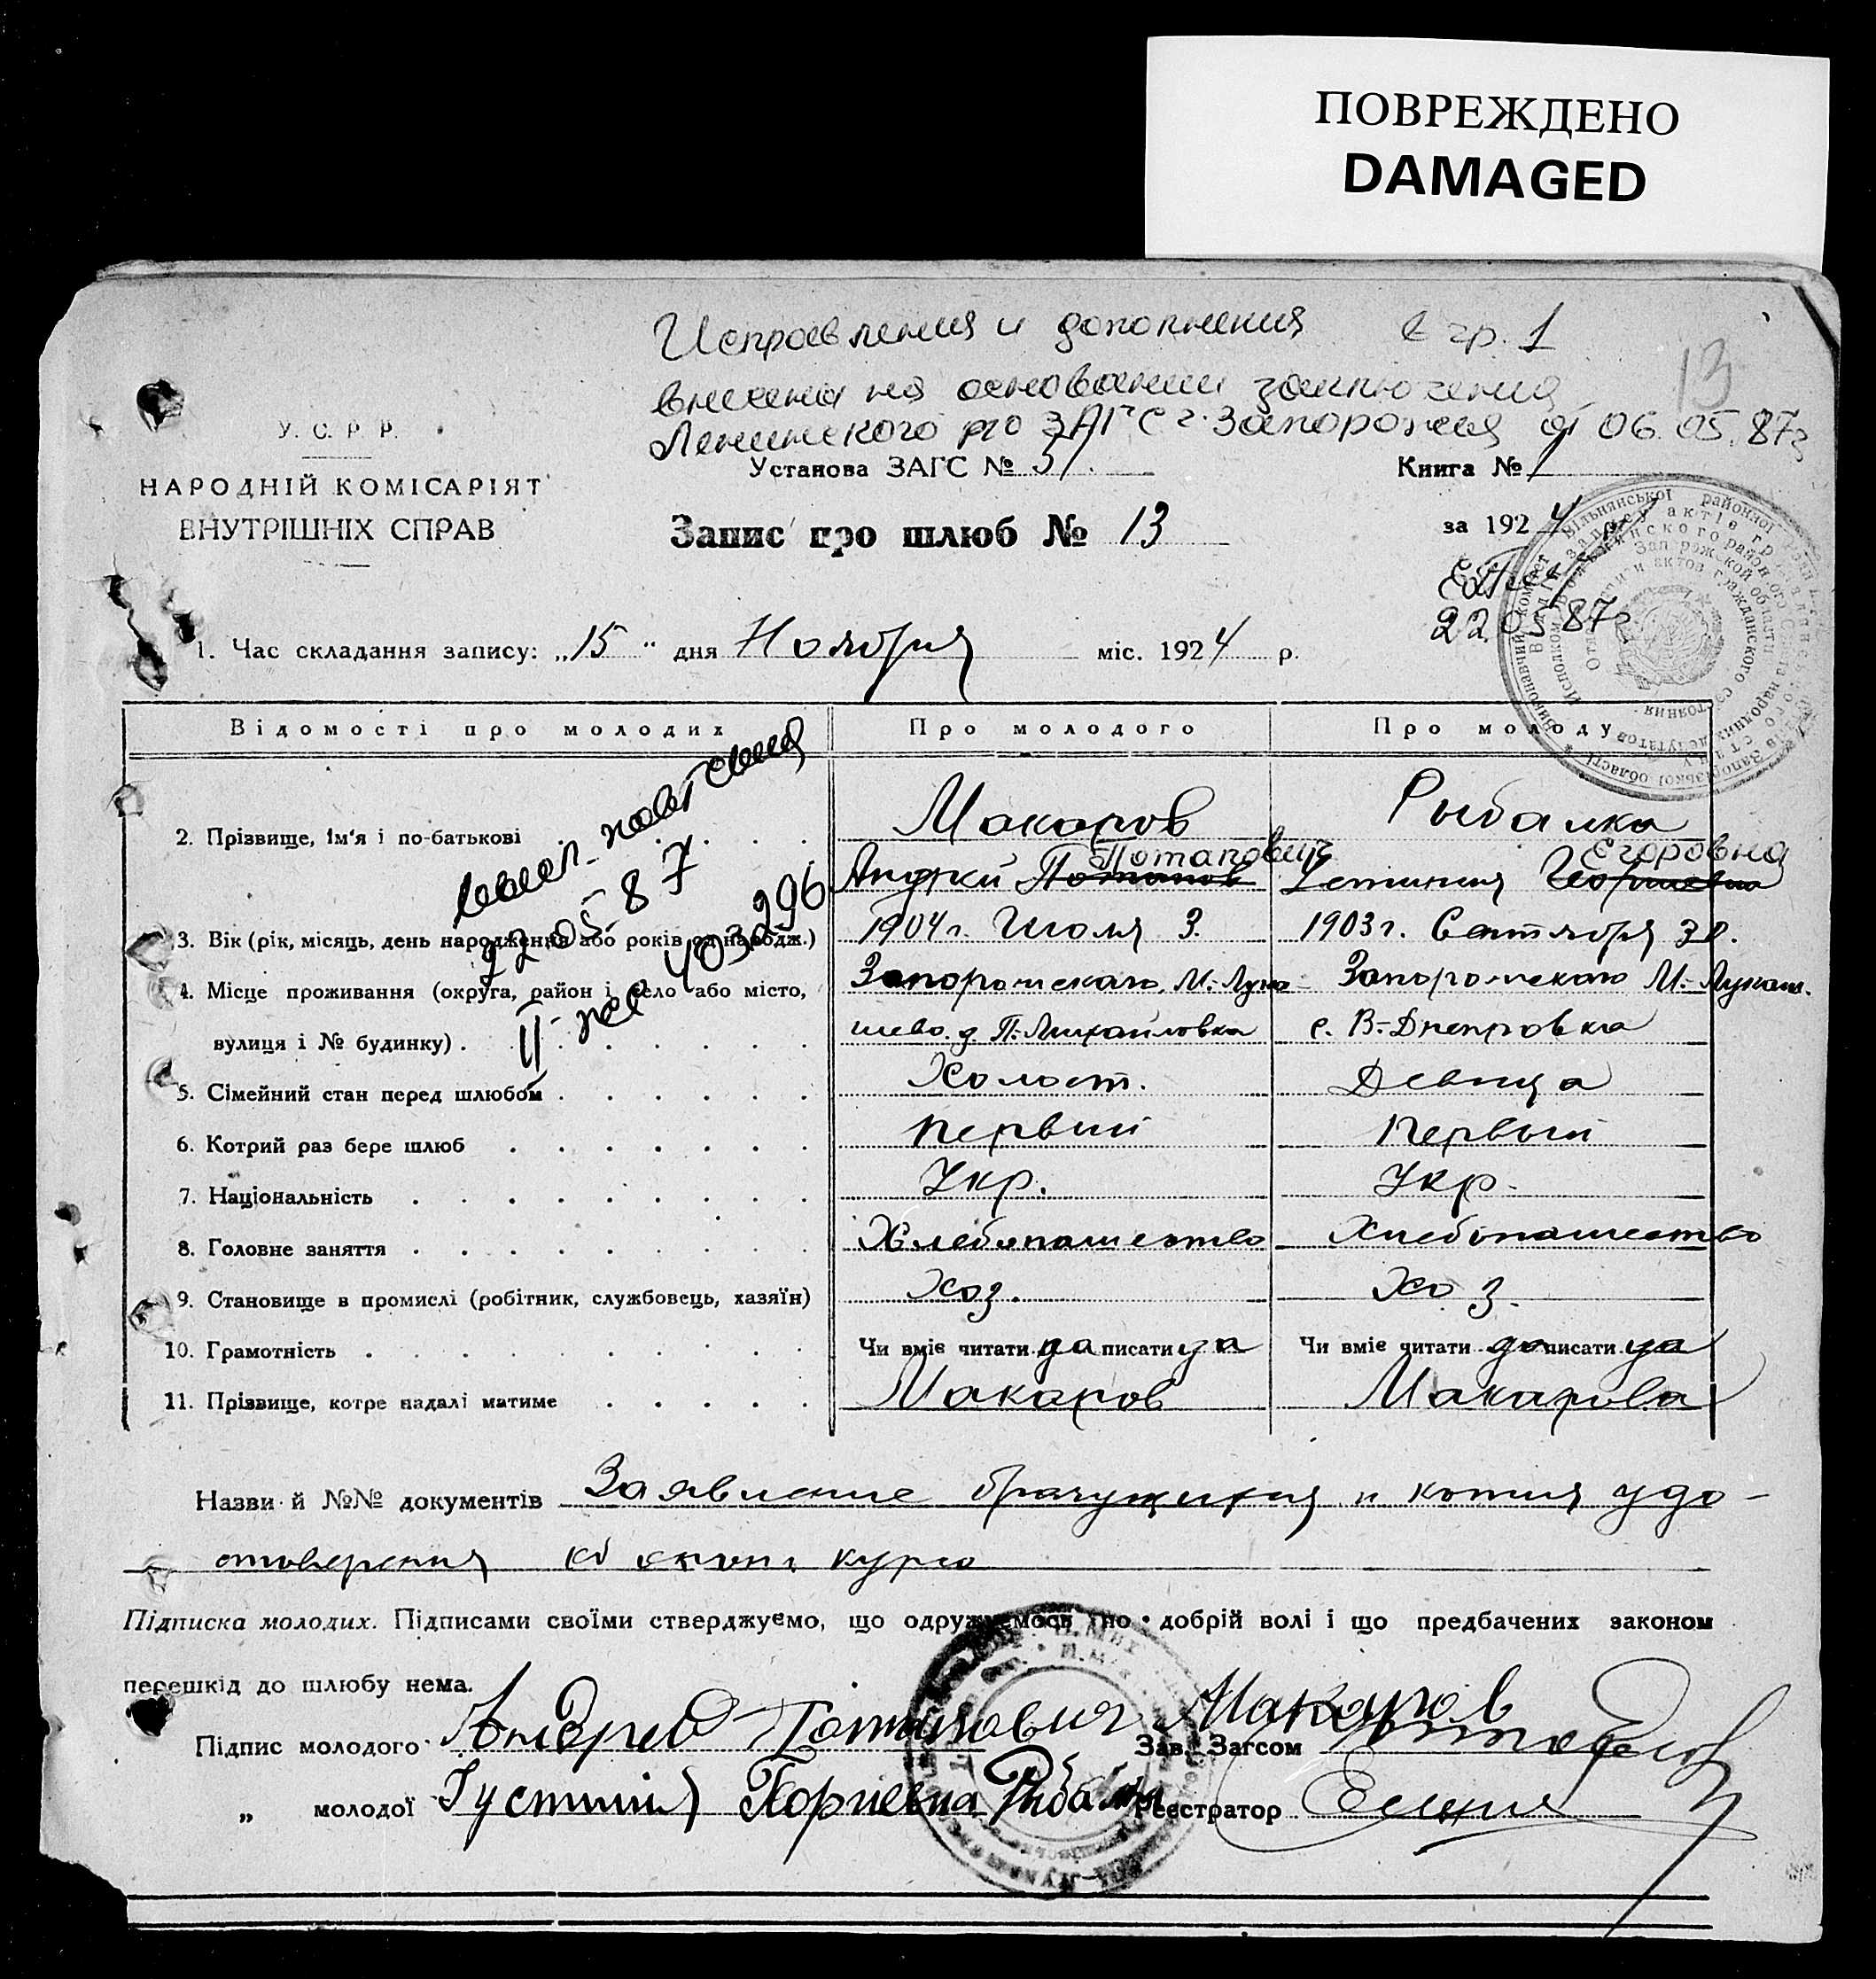 ПОВРЕЖДЕНО
DAMAGED
Исправления и дополнения в гр. 1
внесены на основании заключения
Ленинского р/о ЗАГС г. Запорожья от 06.05.87г
13
У. С. Р. Р.
НАРОДНІЙ КОМІСАРІЯТ
ВНУТРІШНІХ СПРАВ
Установа ЗАГС №
Книга № 1
Запис про шлюб № 13
за 1924
22.05.87г
1. Час складання запису: „15“ дня Ноября міс. 1924 р.
Відомості про молодих Про молодого Про молоду
2. Прізвище, ім'я і по-батькові Макаров Рыбалка
Потапович Егоровна
Андрей Потапов Устиния Георгиевна
3. Вік (рік, місяць, день народження або років од народж.) 1904 г. Июля 3. 1903 г. Сентября 30.
4. Місце проживання (округа, район і село або місто, Запорожскаго, М.-Лука- Запорожскаго М.-Лукаш.
вулиця і № будинку) . шево. д. П.-Михайловка с. В.-Днепровка
выд. повторный
22.05.87
II-жс 403296
5. Сімейний стан перед шлюбом Холост. Девица
6. Котрий раз бере шлюб Первый Первый
7. Національність Укр. Укр.
8. Головне заняття Хлебопашество Хлебопашество
9. Становище в промислі (робітник, службовець, хазяїн) Хоз. Хоз.
10. Грамотність Чи вміє читати да писати да Чи вміє читати да писати да
11. Прізвище, котре надалі матиме Макаров Макарова
Назви й №№ документів Заявление брачущихся и копия удо-
стоверения
Підписка молодих. Підписами своїми стверджуємо, що одружуємось по добрій волі і що предбачених законом
перешкід до шлюбу нема.
Підпис молодого Андрей Потапович Макаров Зав. Загсом
„ молодої Густиния Георгиевна Рибалка Реєстратор